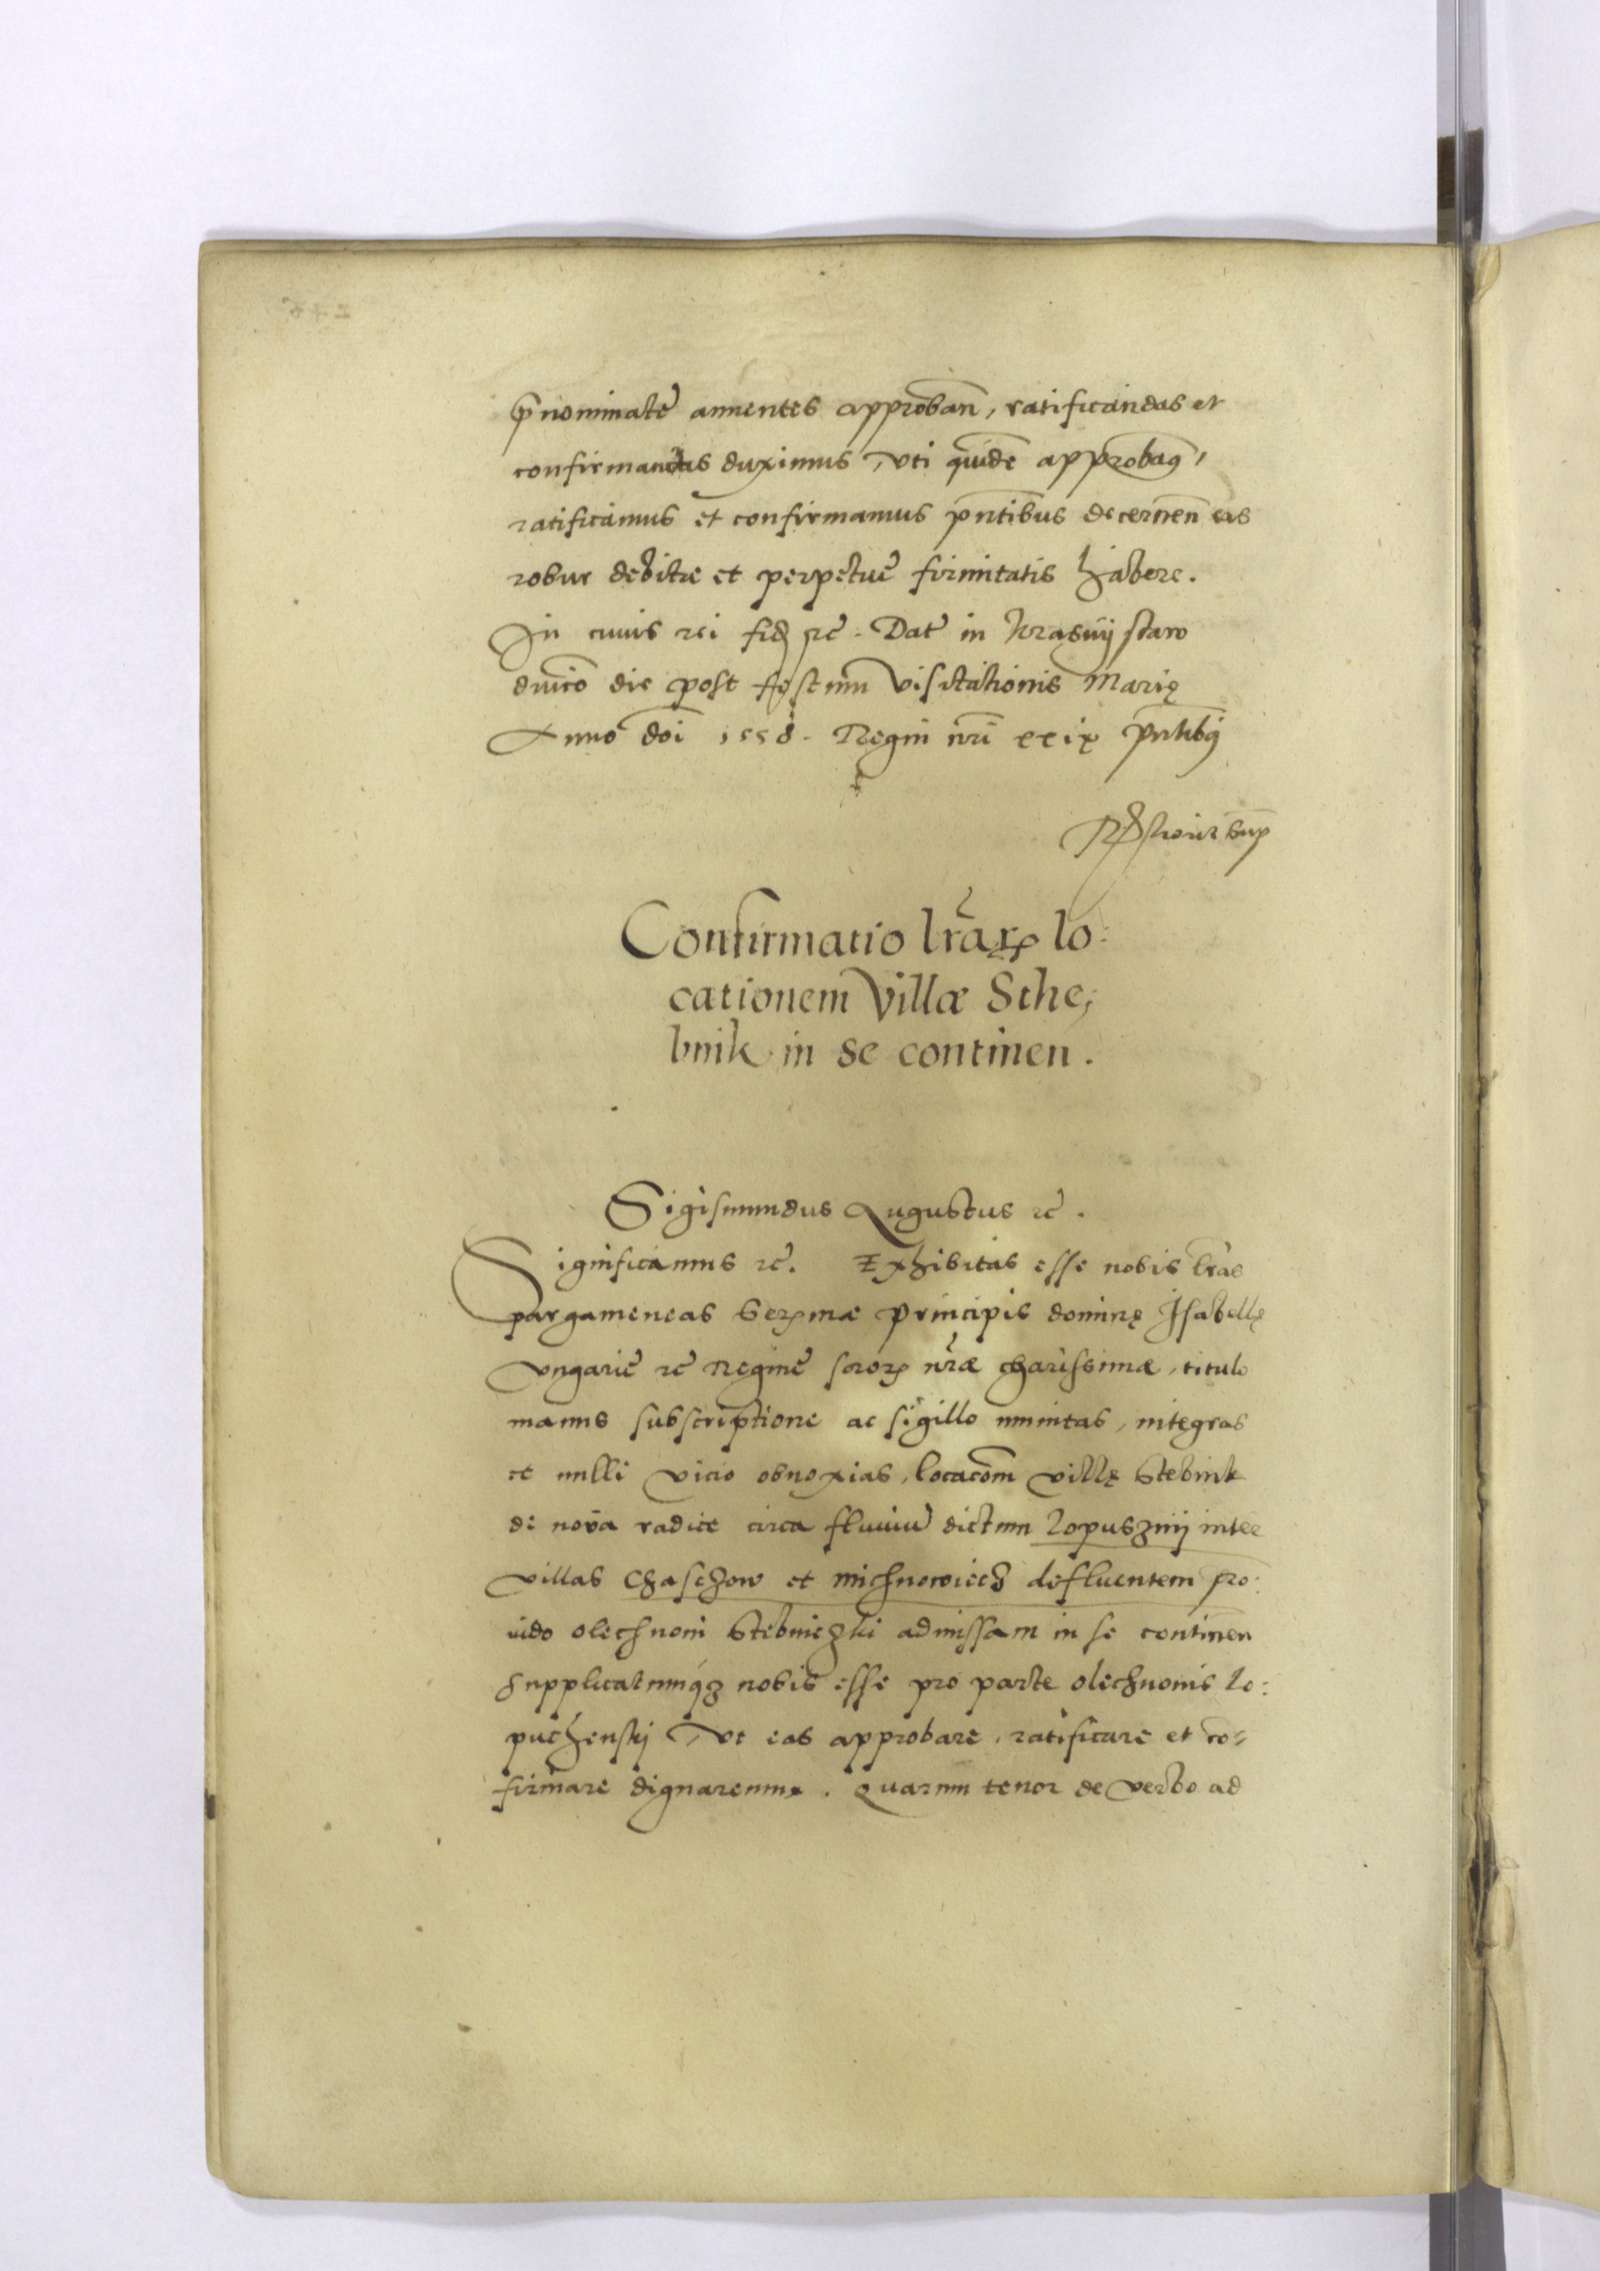 p̄nominatæ annentes approban̄, ratificandas et
confirmandas duximus, vti quidē approbamꝰ,
ratificamus et confirmamus pñtibus decernen̄ eas
robur debitæ et perpetuæ firmitatis habere.
In cuius rei fidē rc̄. Dat̄ in Krasnij staw
dnico die post festum Visitationis Marię
Anno dōi 1558. Regni nr̄i xxix pn̄tibꝰ
Confirmatio lr̄arꝝ lo:
cationem Villæ Sthe,
bnik in se continen.
Sigismundus Augustus rc̄.
Significamus rc̄. Exhibitas esse nobis lr̄as
pargameneas Serꝫmæ principis dominę Isabellę
Vngariæ rc̄ Reginæ soror̄ nr̄æ charissimæ, titulo
manus subscriptione ac sigillo munitas, integras
et nulli vicio obnoxias, locacōm villę Stebnik
de noua radice circa fluuiū dictum Lopusznij inter
villas Chaschow et Michnowiecz defluentem pro:
uido olechnoni Stebniczki admissam in se continen
Supplicatumqꝫ nobis esse pro parte olechnonis Lo:
puchenskj Vt eas approbare, ratificare et cō:
firmare dignaremur. Quarum tenor de verbo ad